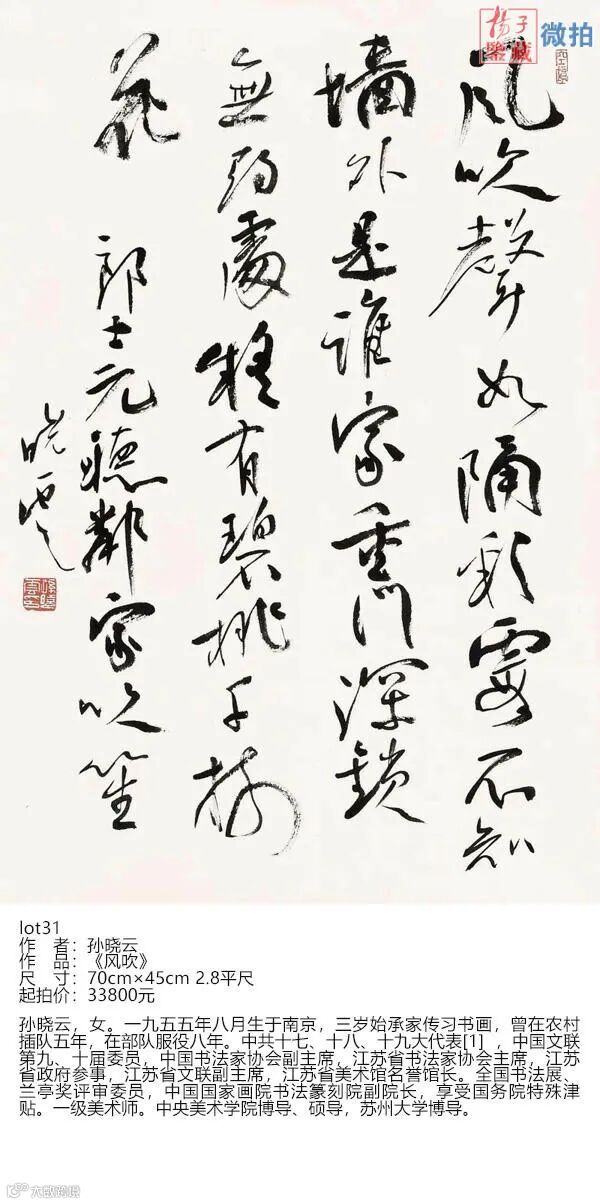 揚子
鑒藏
微拍
風吹聲如隔彩霞不知
墻外是誰家重門深鎖
無尋處疑有碧桃千樹
花 郎士元聽鄰家吹笙
曉雲
lot31
作 者：孙晓云
作 品：《风吹》
尺 寸：70cm×45cm 2.8平尺
起拍价：33800元
孙晓云，女。一九五五年八月生于南京，三岁始承家传习书画，曾在农村
插队五年，在部队服役八年。中共十七、十八、十九大代表[1] ，中国文联
第九、十届委员，中国书法家协会副主席，江苏省书法家协会主席，江苏
省政府参事，江苏省文联副主席，江苏省美术馆名誉馆长。全国书法展、
兰亭奖评审委员，中国国家画院书法篆刻院副院长，享受国务院特殊津
贴。一级美术师。中央美术学院博导、硕导，苏州大学博导。
大数跨境